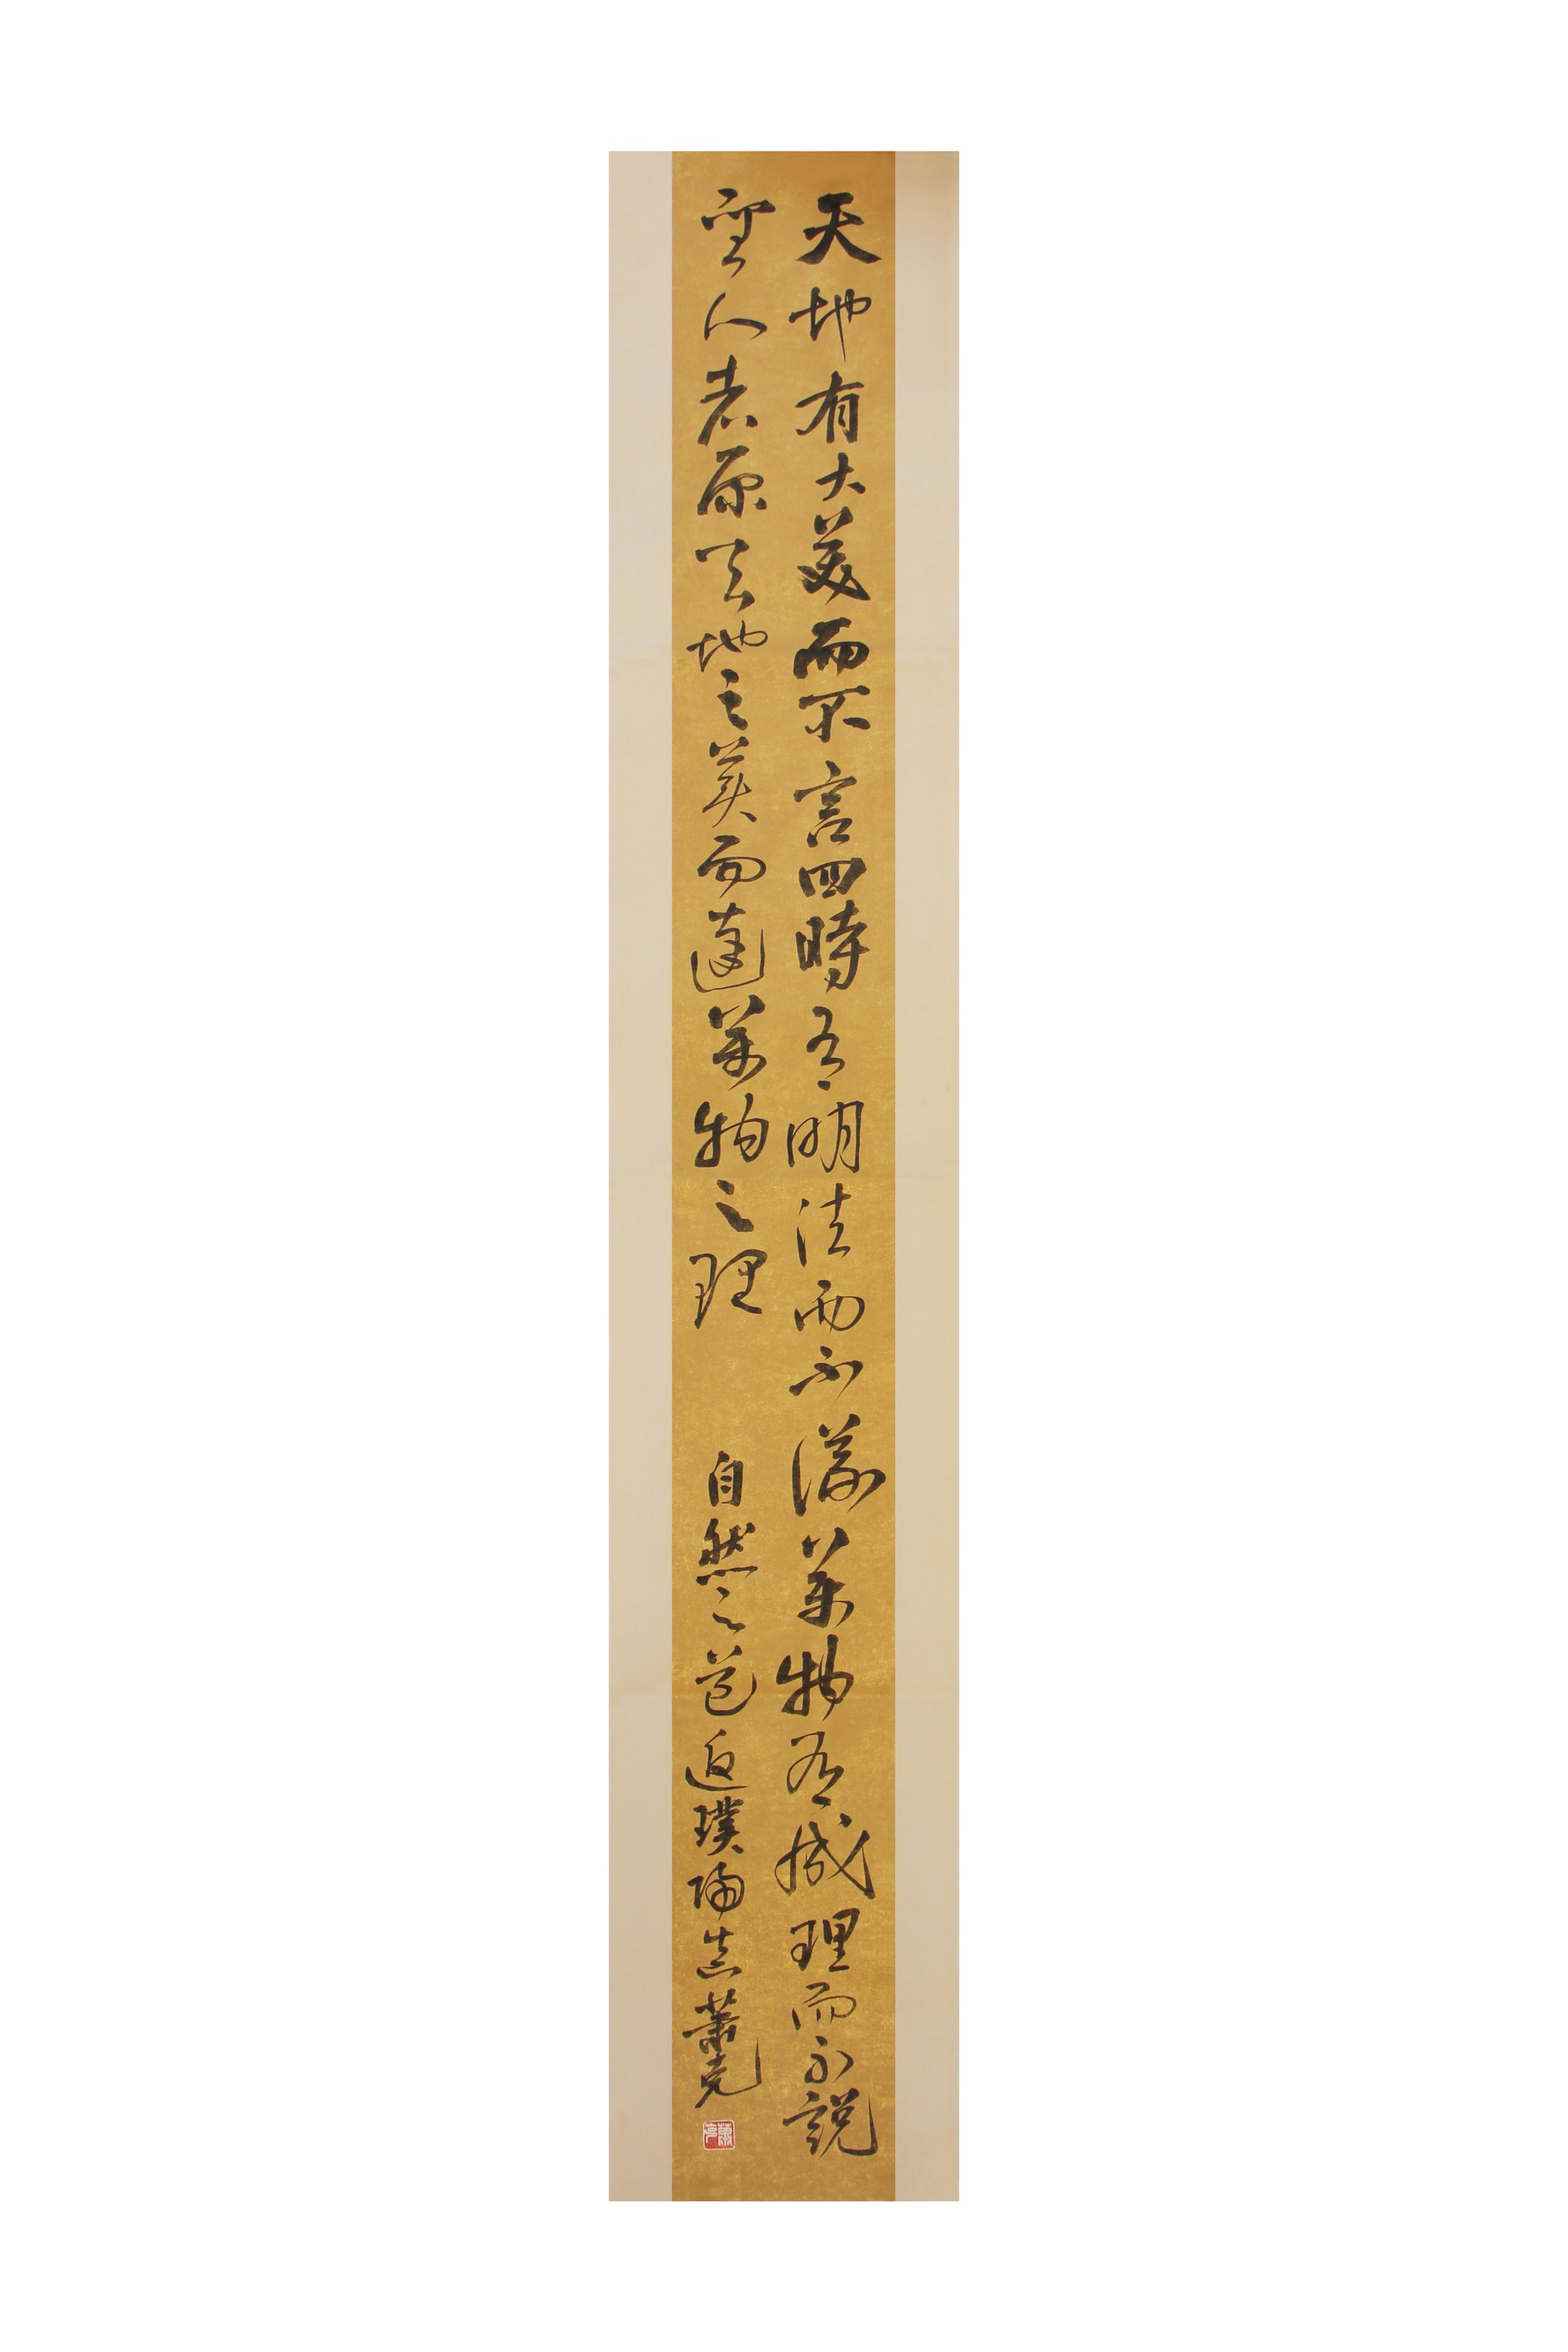 天地有大美而不言四時有明法而不議萬物有成理而不說
聖人者原天地之美而達萬物之理 自然之道返璞歸真 蕭克